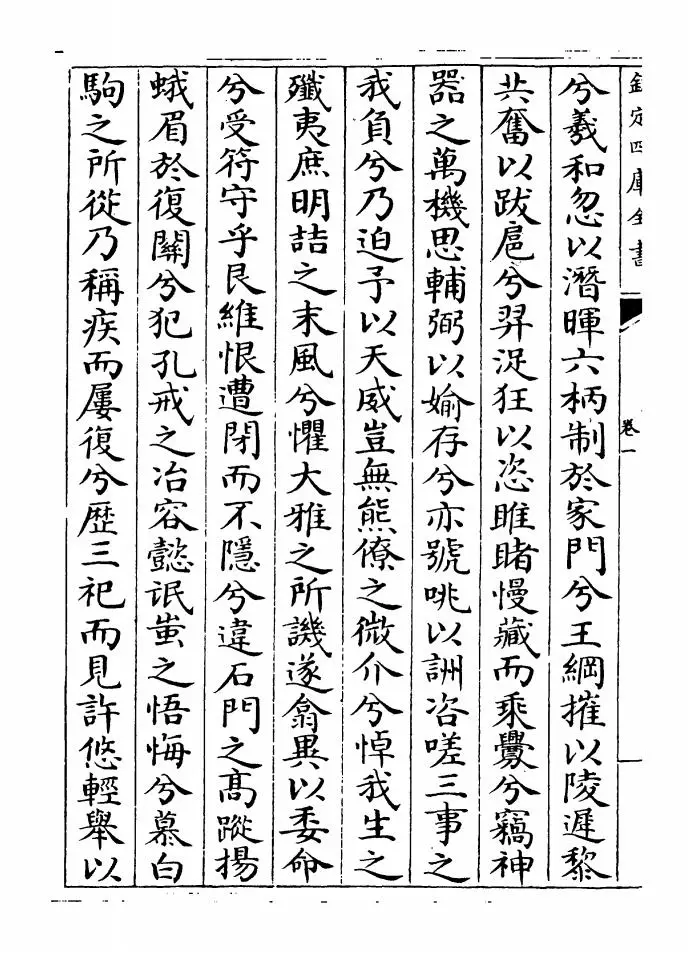 欽定四庫全書
卷一
兮羲和忽以潛暉六柄制於家門兮王綱摧以陵遲黎
共奮以跋扈兮羿浞狂以恣睢睹慢藏而乘釁兮竊神
器之萬機思輔弼以媮存兮亦號咷以詶咨嗟三事之
我負兮乃迫予以天威豈無熊僚之微介兮悼我生之
殲夷庶明詰之末風兮懼大雅之所譏遂翕異以委命
兮受符守乎艮維恨遭閉而不隱兮違石門之髙蹤揚
蛾眉於復關兮犯孔戒之冶容懿氓蚩之悟悔兮慕白
駒之所從乃稱疾而屢復兮歴三祀而見許悠輕舉以